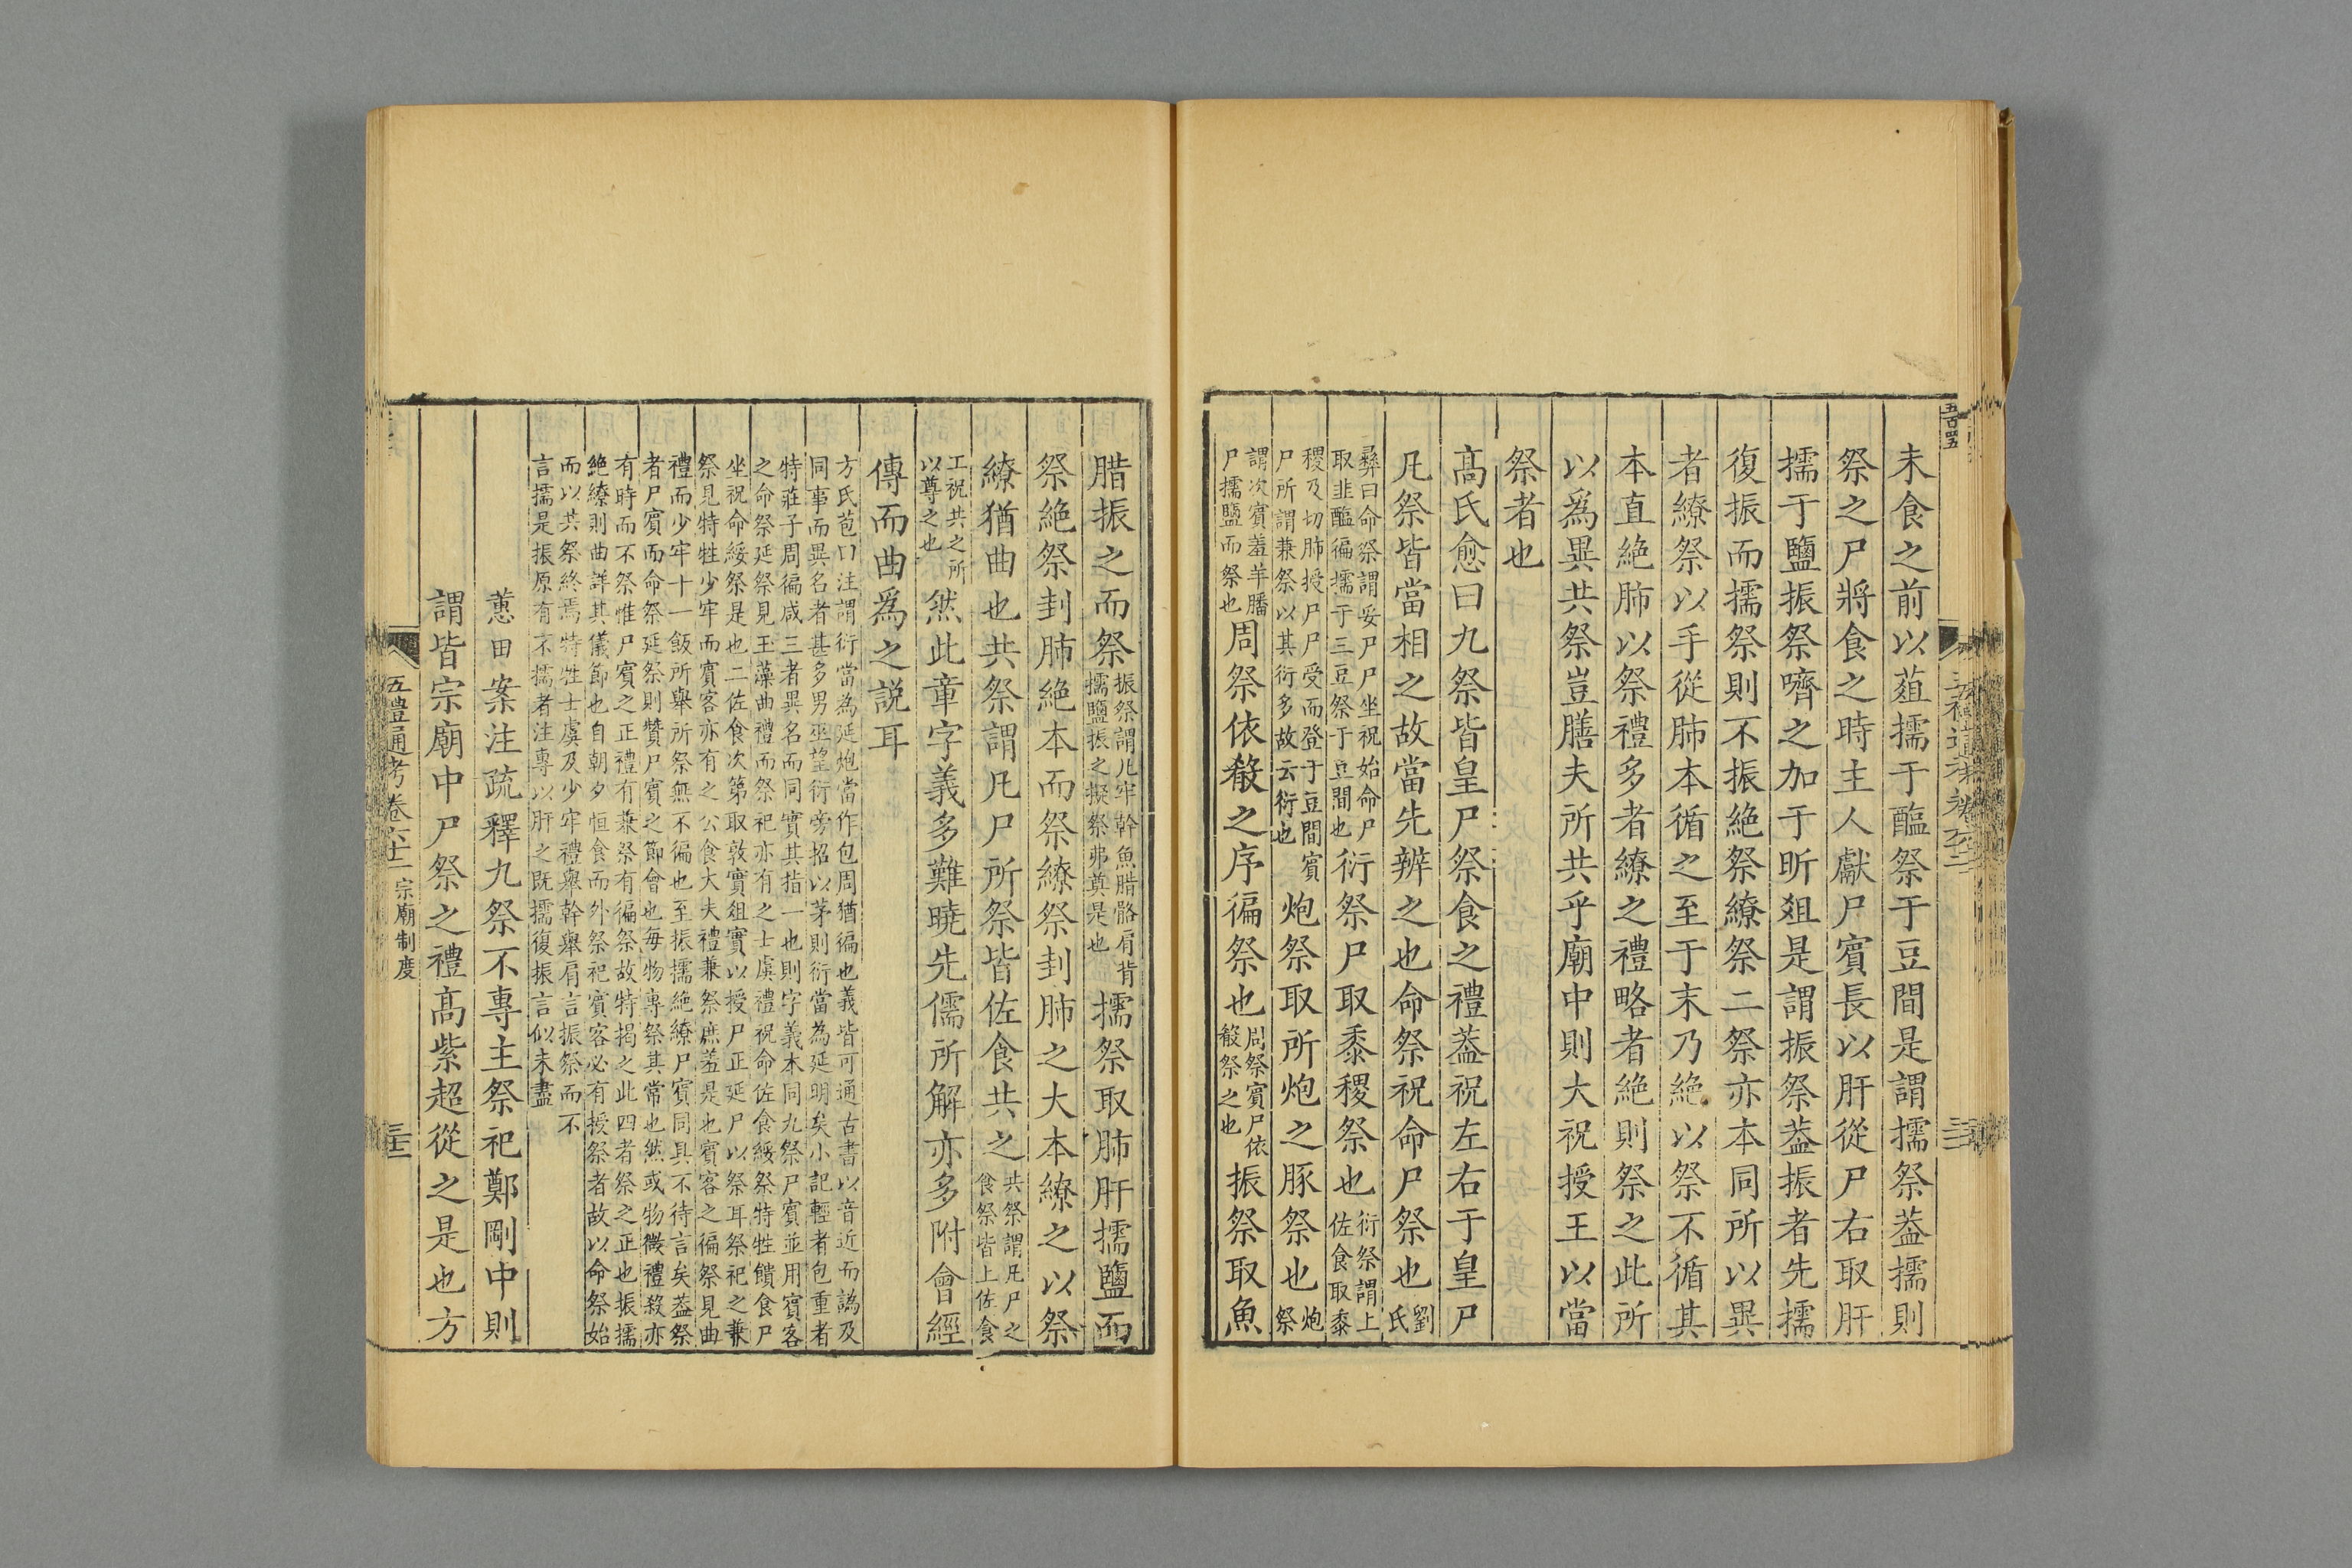 未食之前以葅擩于醢祭于豆間是謂擩祭葢擩則
祭之尸將食之時主人獻尸賓長以肝從尸右取肝
擩于鹽振祭嚌之加于昕爼是謂振祭葢振者先擩
復振而擩祭則不振絶祭繚祭二祭亦本同所以異
者繚祭以手從肺本循之至于末乃絶以祭不循其
本直絶肺以祭禮多者繚之禮略者絶則祭之此所
以爲異共祭豈膳夫所共乎廟中則大祝授王以當
祭者也
髙氏愈曰九祭皆皇尸祭食之禮葢祝左右于皇尸
凡祭皆當相之故當先辨之也命祭祝命尸祭也劉氏
彝曰命祭謂妥尸尸坐祝始命尸
取韭醢徧擩于三豆祭于豆間也衍祭尸取黍稷祭也衍祭謂上
佐食取黍
稷及切肺授尸尸受而登于豆間賓
尸所謂兼祭以其衍多故云衍也炮祭取所炮之豚祭也炮祭
謂次賓羞羊膰
尸擩鹽而祭也周祭依殽之序徧祭也周祭賓尸依
殽祭之也振祭取魚
腊振之而祭振祭謂凡牢幹魚腊骼肩皆
擩鹽振之擬祭弗奠是也擩祭取肺肝擩鹽而
祭絶祭刲肺絶本而祭繚祭刲肺之大本繚之以祭
繚猶曲也共祭謂凡尸所祭皆佐食共之共祭謂凡尸之
食祭皆上佐食
工祝共之所
以尊之也然此章字義多難曉先儒所解亦多附會經
傳而曲爲之説耳
方氏苞曰注謂衍當為延炮當作包周猶徧也義皆可通古書以音近而譌及
同事而異名者甚多男巫望衍旁招以茅則衍當為延明矣小記輕者包重者
特莊子周徧咸三者異名而同實其指一也則字義本同九祭尸賓並用賓客
之命祭延祭見玉藻曲禮而祭祀亦有之士虞禮祝命佐食綏祭特牲饋食尸
坐祝命綏祭是也二佐食次第取敦實俎實以授尸正延尸以祭耳祭祀之兼
祭見特牲少牢而賓客亦有之公食大夫禮兼祭庶羞是也賓客之徧祭見曲
禮而少牢十一飯所舉所祭無不徧也至振擩絶繚尸賓同具不待言矣葢祭
者尸賓而命祭延祭則贊尸賓之節會也每物專祭其常也然或物微禮殺亦
有時而不祭惟尸賓之正禮有兼祭有徧祭故特掲之此四者祭之正也振擩
絶繚則曲詳其儀節也自朝夕恒食而外祭祀賓客必有授祭者故以命祭始
而以共祭終焉特牲士虞及少牢禮舉幹舉肩言振祭而不
言擩是振原有不擩者注專以肝之既擩復振言似未盡
蕙田案注疏釋九祭不專主祭祀鄭剛中則
謂皆宗廟中尸祭之禮髙紫超從之是也方
五禮通考卷六十二 宗廟制度
三十二